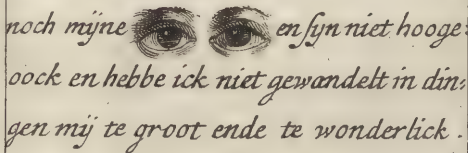 noch mijne en sijn niet hooge:
oock en hebbe ick niet gewandelt in din:
gen mij te groot ende te wonderlick.